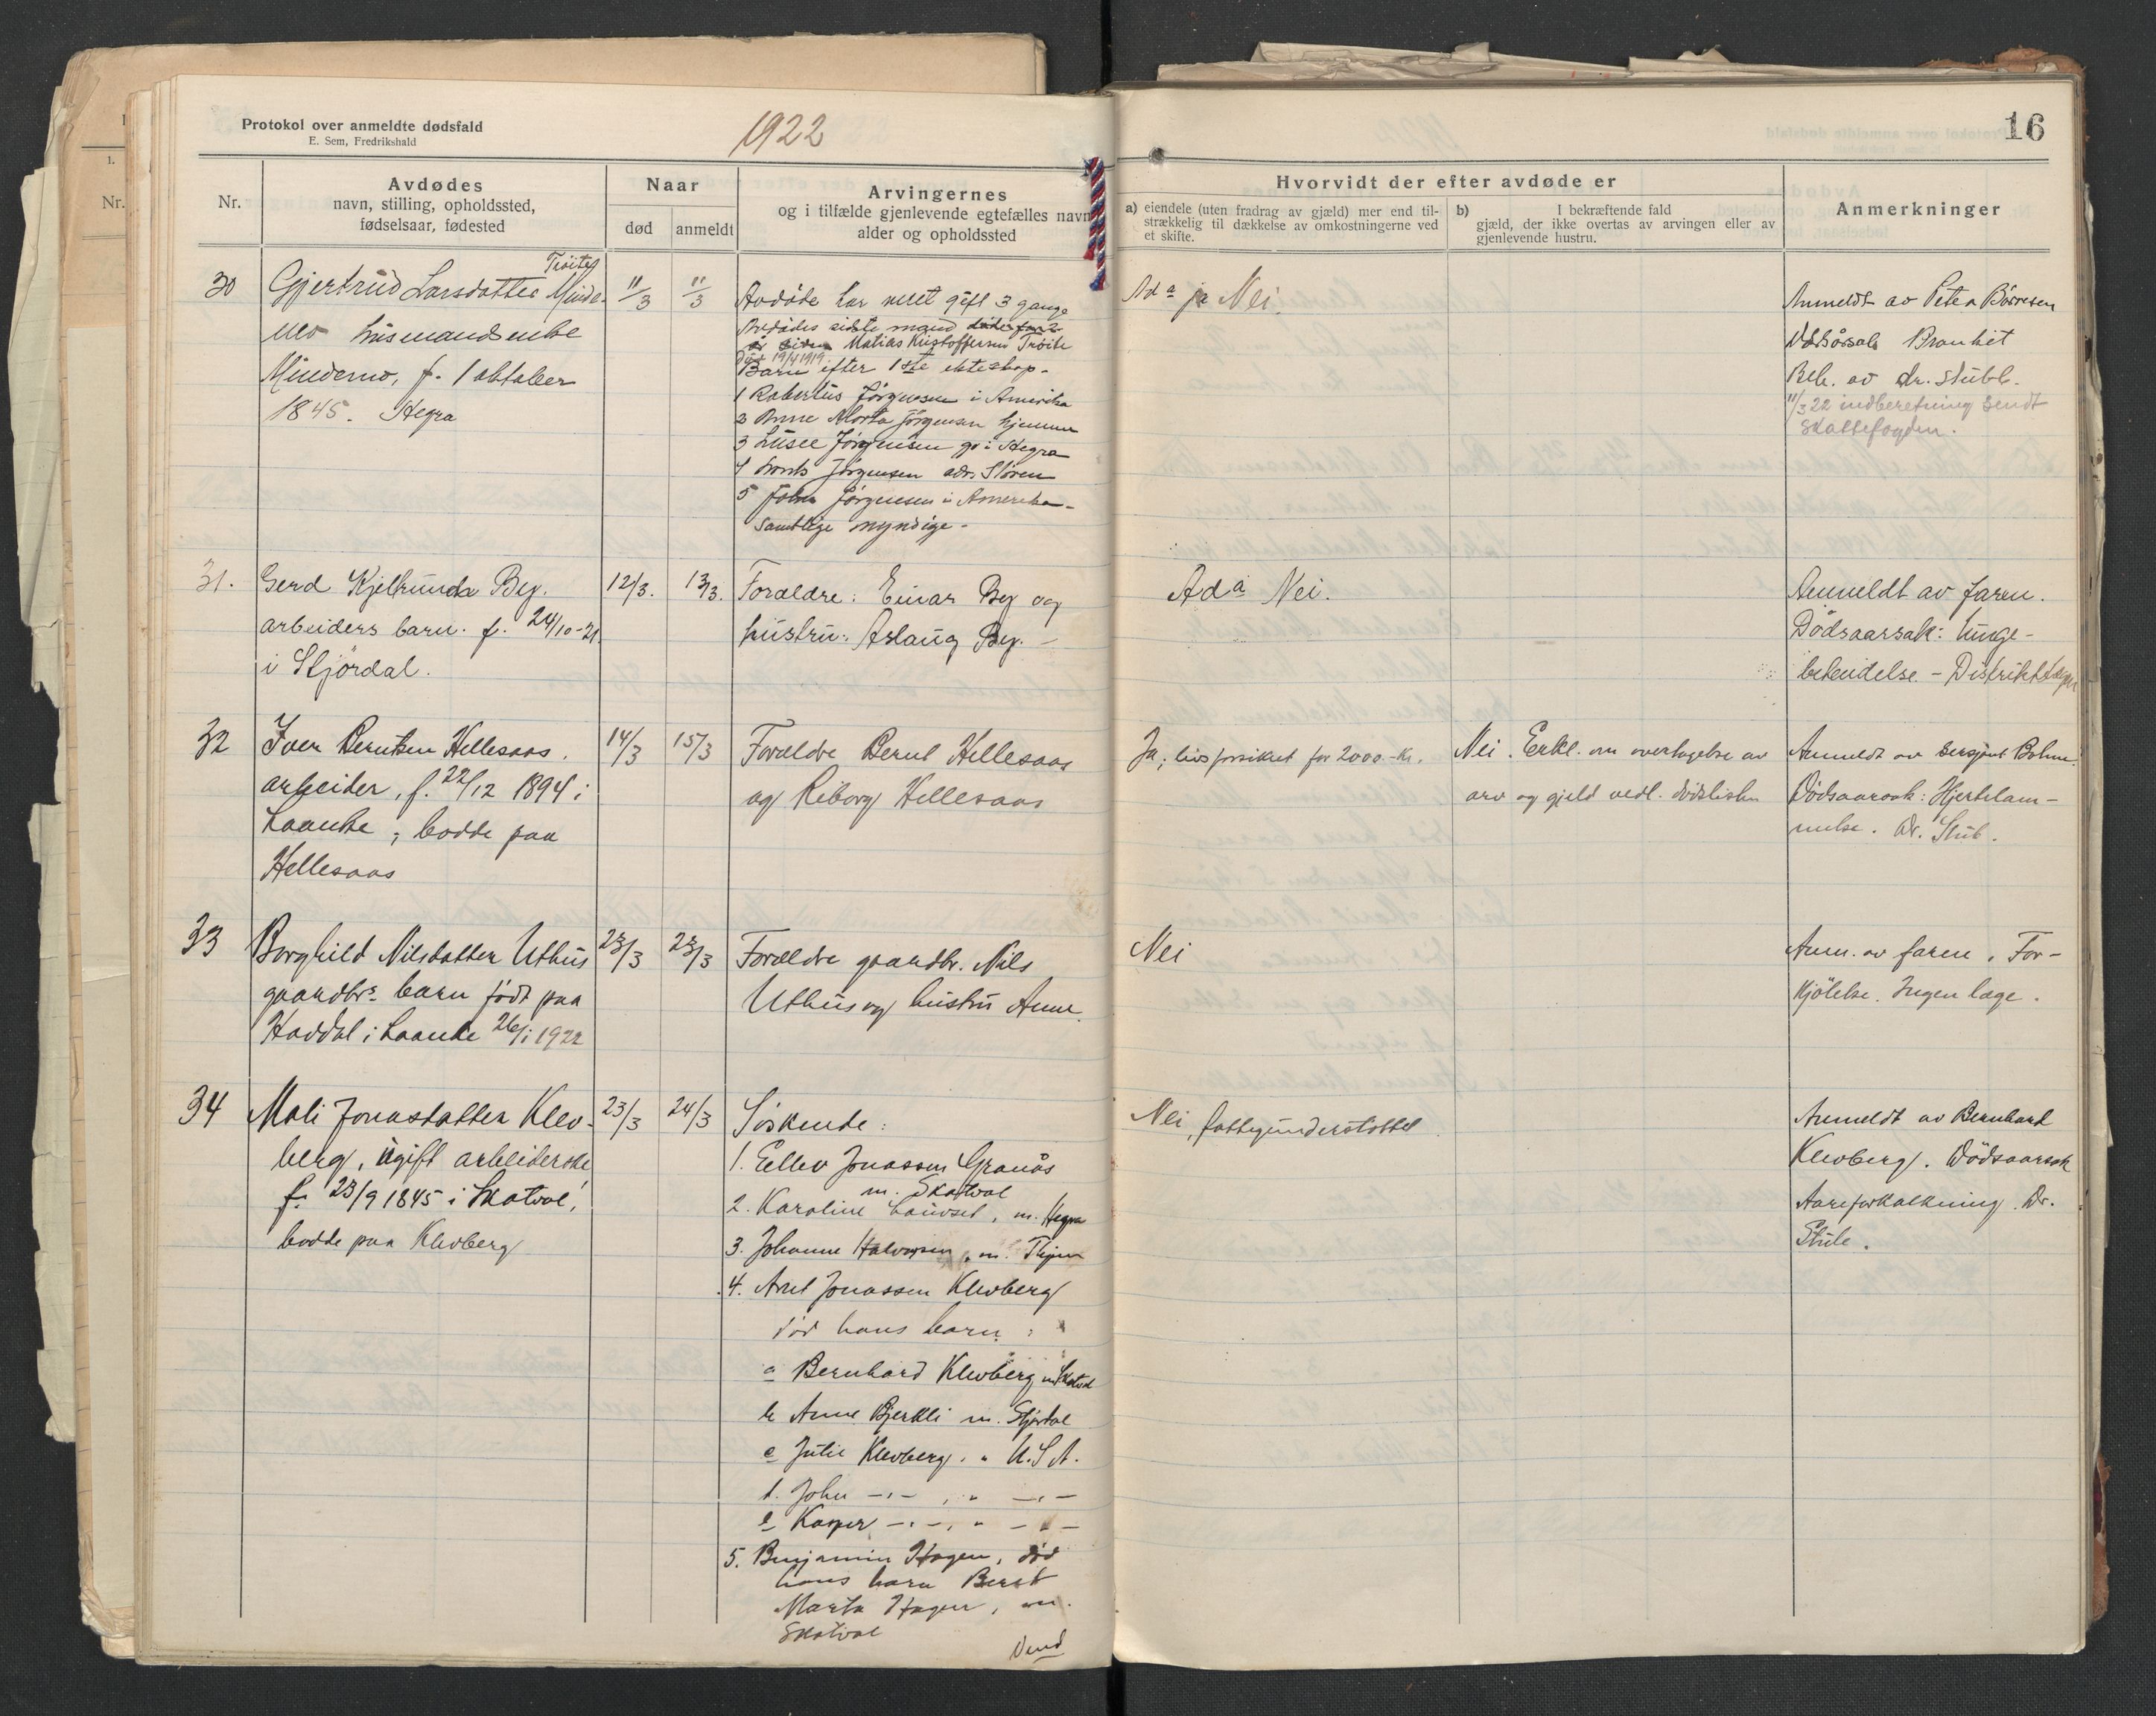 Protokol over anmeldte dødsfald
E. Sem, Fredrikshald
1922
16
Nr.
Avdødes
navn, stilling, opholdssted,
fødselsaar, fødested
Naar
død
anmeldt
Arvingernes
og i tilfælde gjenlevende egtefælles navn
alder og opholdssted
Hvorvidt der efter avdøde er
a) eiendele (uten fradrag av gjæld) mer end til-
strækkelig til dækkelse av omkostningerne ved
et skifte.
b) I bekræftende fald
gjæld, der ikke overtas av arvingen eller av
gjenlevende hustru.
Anmerkninger
30
Trøites
Gjertrud Larsdatter Minde-
mo husmandsenke
Mindemo, f. 1 oktober
1845. Hegra
11/3
11/3
Avdøde har været gift 3 gange
Avdødes sidste mand døde for 2
år siden Matias Kristoffersen Trøite
Død 19/4 1919.
Barn efter 1ste ekteskap.
1 Robertus Jørgensen i Amerika
2 Anne Marta Jørgensen hjemme
3 Lusee Jørgensen gr i Hegra
4 Jørgensen adr. Støren
5 John Jørgensen i Amerika
Samtlige myndige.
Ad a ja Nei.
Anmeldt av Peter Børresen
Dødsårsak Bronkit
Beh. av dr. Stub.
11/3 22 indberetning sendt
Skattefogden.
31.
Gerd Kjellrunda Bey.
arbeiders barn. f. 24/10-21
i Stjørdal.
12/3.
13/3.
Forældre: Einar Bey og
hustru: Aslaug Bey.
Ad a Nei.
Anmeldt av faren.
Dødsaarsak: lunge-
betendelse. - Distriktslægen
32
Iver Berntsen Hellesaas.
arbeider, f. 22/12 1894 i
Laanke, bodde paa
Hellesaas
14/3
15/3
Forældre Bernt Hellesaas
og Riborg Hellesaas
Ja; livsforsikret for 2000.- Kr.
Nei. Erkl. om overtagelse av
arv og gjeld vedl. dødslisten
Anmeldt av sersjant Bohme.
Dødsaarsak: Hjertelam-
melse. Dr. Stub.
33
Borghild Nilsdatter Uthus
gaardbrs barn født paa
Hoddal i Laanke 26/1 1922
23/3
23/3
Forældre gaardbr. Nils
Uthus og hustru Anne.
Nei
Anm. av faren. For-
kjølelse. Ingen læge.
34
Mali Jonasdatter Klev-
berg, ugift arbeiderske
f. 23/9 1845 i Skatval,
bodde paa Klevberg
23/3
24/3
Søskende:
1. Ellev Jonassen Granås
m. Skatval
2. Karoline Lauvset, m. Hegra
3. Johanne Halvorsen, m. Thjem
4. Axel Jonassen Klevberg
død hans barn:
a Bernhard Klevberg m. Skatval
b Anne Bjerkli m. Stjørdal
c Julie Klevberg. " U.S.A.
d. John -"- , " -"-
e Kasper -"-, " -"-
5. Benjamin Hagen, død
hans barn Beret
Marta Hagen, m.
Skatval
Vend
Nei, fattigunderstøttet.
Anmeldt av Bernhard
Klevberg. Dødsaarsak
Aareforkalkning. Dr.
Stub.